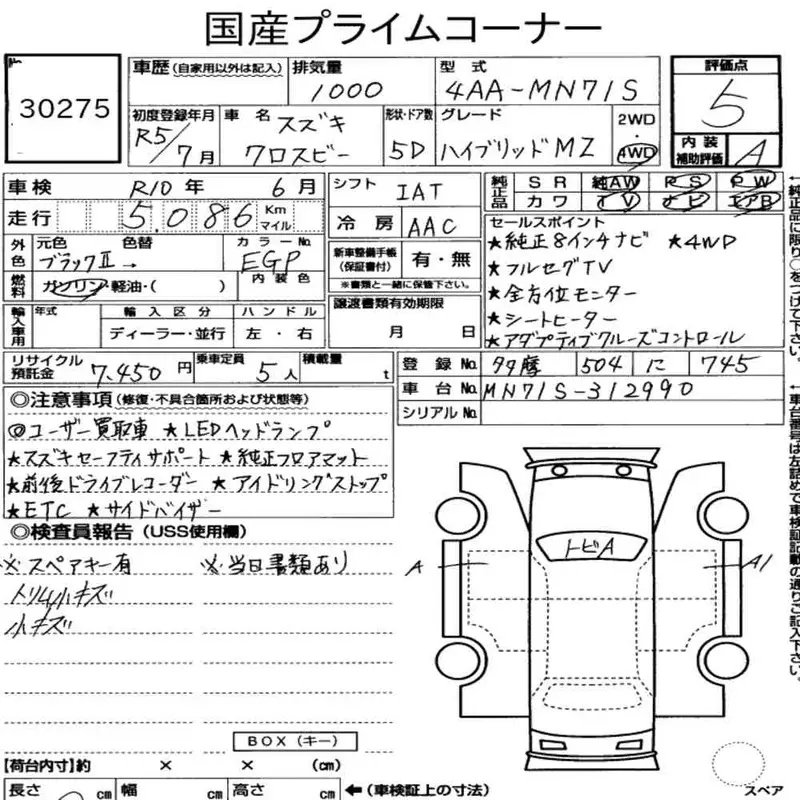 国産プライムコーナー
No 30275
車歴 (自家用以外は記入)
排気量 1000
型式 4AA-MN71S
評価点 5
初度登録年月 R5/7月
車名 スズキ クロスビー
形状・ドア数 5D
グレード ハイブリッドMZ
2WD 4WD
内装補助評価 A
車検 R10年 6月
シフト IAT
純正品 SR 純AW PS PW
カワ TV ナビ エアB
走行 5.086 Km マイル
冷房 AAC
セールスポイント
★純正8インチナビ ★4WD
★フルセグTV
★全方位モニター
★シートヒーター
★アダプティブクルーズコントロール
外色 元色 色替 カラーNo.
ブラックⅡ → EGP
新車整備手帳(保証書付) 有・無
※書類と一緒に保管下さい。
燃料 ガソリン・軽油・( ) 内装色
譲渡書類有効期限
月 日
輸入車用 年式 輸入区分 ハンドル
ディーラー・並行 左・右
リサイクル預託金 7.450円
乗車定員 5人
積載量 t
登録No. 多摩 504 に 745
車台No. MN71S-312990
シリアルNo.
◎注意事項(修復・不具合箇所および状態等)
◎ユーザー買取車 ★LEDヘッドランプ
★スズキセーフティサポート ★純正フロアマット
★前後ドライブレコーダー ★アイドリングストップ
★ETC ★サイドバイザー
◎検査員報告(USS使用欄)
※スペアキー有 ※当日書類あり
トリム小キズ
小キズ
トビA
A
A1
BOX(キー)
【荷台内寸】約 × × (cm)
長さ cm 幅 cm 高さ cm ←(車検証上の寸法)
スペア
←純正品に限り○をつけて下さい。
←車台番号は左詰めで車検証記載の通りご記入下さい。